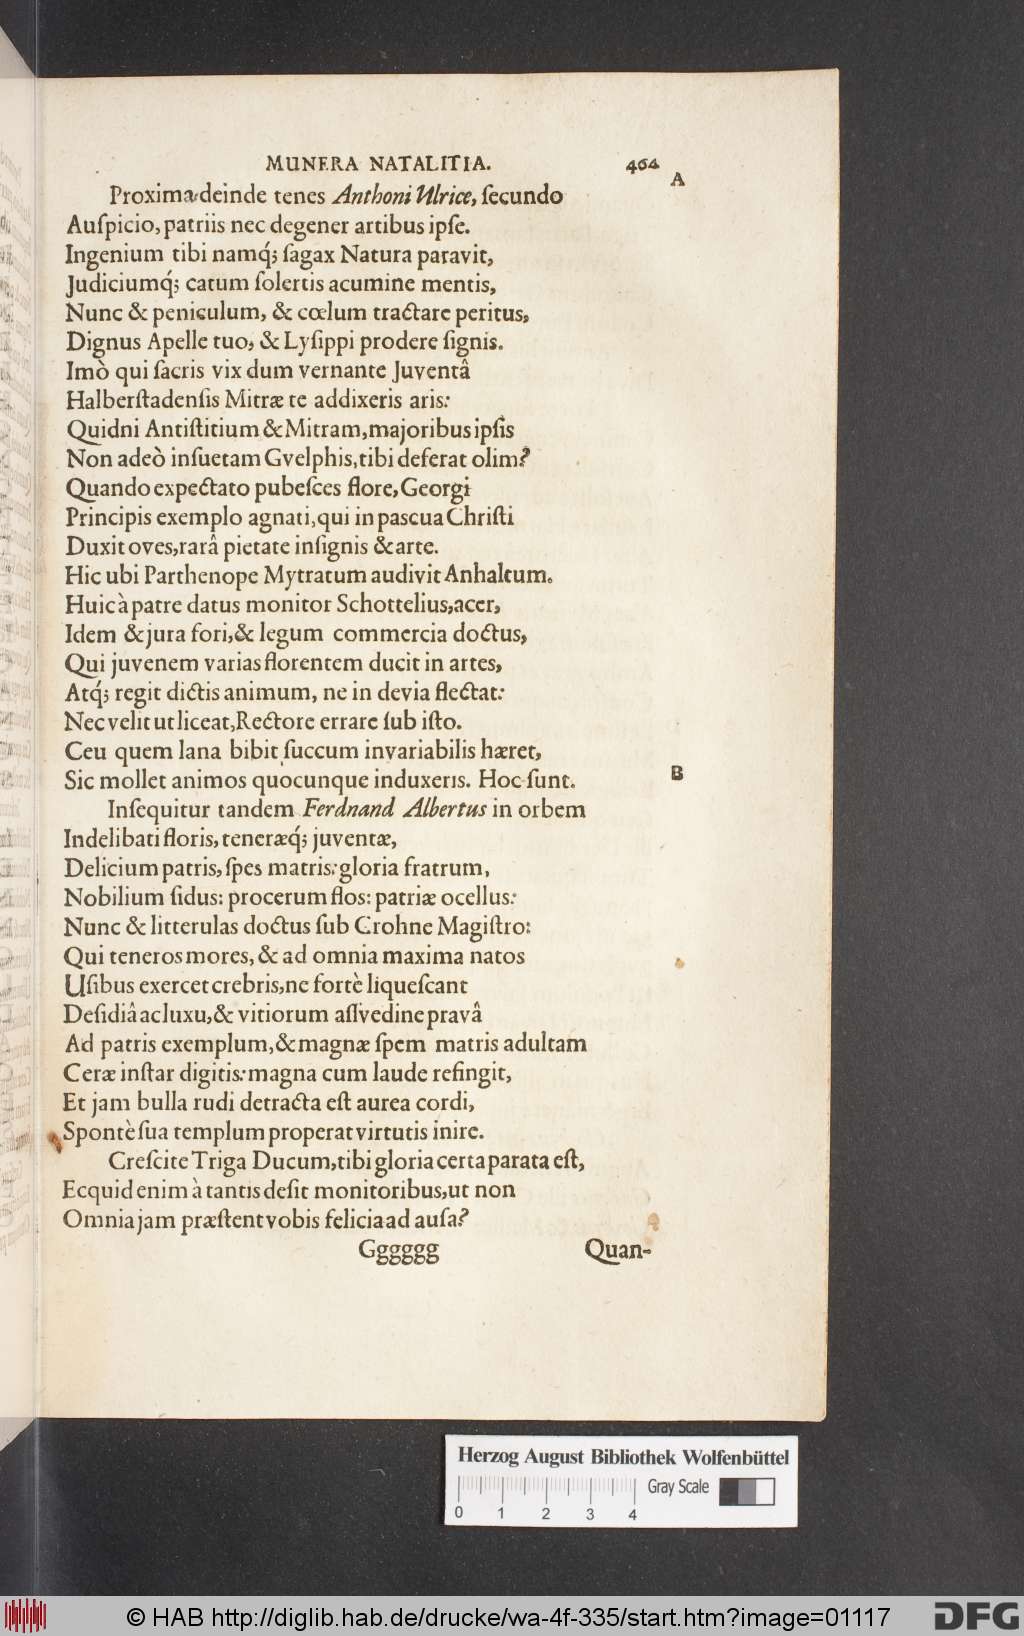 MUNERA NATALITIA. 464
A
Proxima deinde tenes Anthoni Ulrice, ſecundo
Auſpicio, patriis nec degener artibus ipſe.
Ingenium tibi namq́; ſagax Natura paravit,
Judiciumq́; catum ſolertis acumine mentis,
Nunc & peniculum, & cœlum tractare peritus,
Dignus Apelle tuo, & Lyſippi prodere ſignis.
Imò qui ſacris vix dum vernante Juventâ
Halberſtadenſis Mitræ te addixeris aris:
Quidni Antiſtitium & Mitram, majoribus ipſis
Non adeò inſuetam Gvelphis, tibi deferat olim?
Quando expectato pubeſces flore, Georgi
Principis exemplo agnati, qui in pascua Chriſti
Duxit oves, rarâ pietate inſignis & arte.
Hic ubi Parthenope Mytratum audivit Anhaltum.
Huic à patre datus monitor Schottelius, acer,
Idem & jura fori, & legum commercia doctus,
Qui juvenem varias florentem ducit in artes,
Atq́; regit dictis animum, ne in devia flectat:
Nec velit ut liceat, Rectore errare ſub iſto.
Ceu quem lana bibit ſuccum invariabilis hæret,
Sic mollet animos quocunque induxeris. Hoc ſunt.
B
Inſequitur tandem Ferdnand Albertus in orbem
Indelibati floris, teneræq́; juventæ,
Delicium patris, ſpes matris: gloria fratrum,
Nobilium ſidus: procerum flos: patriæ ocellus:
Nunc & litterulas doctus ſub Crohne Magiſtro:
Qui teneros mores, & ad omnia maxima natos
Uſibus exercet crebris, ne fortè liqueſcant
Deſidiâ ac luxu, & vitiorum aſſvedine pravâ
Ad patris exemplum, & magnæ ſpem matris adultam
Ceræ inſtar digitis: magna cum laude refingit,
Et jam bulla rudi detracta eſt aurea cordi,
Spontè ſua templum properat virtutis inire.
Creſcite Triga Ducum, tibi gloria certa parata eſt,
Ecquid enim à tantis deſit monitoribus, ut non
Omnia jam præſtent vobis felicia ad auſa?
Gggggg Quan-
Herzog August Bibliothek Wolfenbüttel
Gray Scale
0 1 2 3 4
© HAB http://diglib.hab.de/drucke/wa-4f-335/start.htm?image=01117
DFG